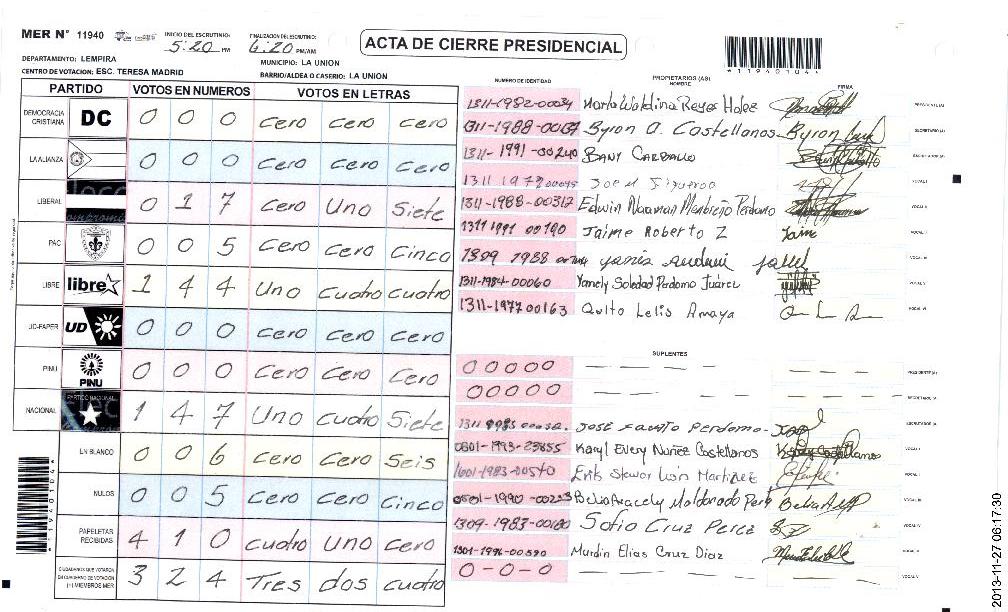 MER N° 11940
INICIO DEL ESCRUTINIO: 5:20 PM
FINALIZACION DEL ESCRUTINIO: 6:20 PM/AM
ACTA DE CIERRE PRESIDENCIAL
*119401044*
DEPARTAMENTO: LEMPIRA
MUNICIPIO: LA UNION
CENTRO DE VOTACION: ESC. TERESA MADRID
BARRIO/ALDEA O CASERIO: LA UNION
PARTIDO VOTOS EN NUMEROS VOTOS EN LETRAS
DEMOCRACIA CRISTIANA DC 0 0 0 cero cero cero
LA ALIANZA 0 0 0 cero cero cero
LIBERAL 0 1 7 Cero Uno Siete
PAC 0 0 5 Cero Cero Cinco
LIBRE libre 1 4 4 Uno Cuatro Cuatro
UD-FAPER UD 0 0 0 Cero Cero Cero
PINU PINU 0 0 0 Cero Cero Cero
NACIONAL PARTIDO NACIONAL 1 4 7 Uno cuatro Siete
EN BLANCO 0 0 6 Cero Cero Seis
NULOS 0 0 5 Cero Cero Cinco
PAPELETAS RECIBIDAS 4 1 0 Cuatro Uno Cero
CIUDADANOS QUE VOTARON EN CUADERNO DE VOTACION (+) MIEMBROS MER 3 2 4 Tres dos cuatro
NUMERO DE IDENTIDAD PROPIETARIOS (AS) NOMBRE FIRMA
1311-1982-00034 Reyes PRESIDENTE(A)
1311-1988- Byron A. Castellanos Byron SECRETARIO(A)
1311-1991-00240 BANY CARBALLO
1311 1977 Joel Figueroa VOCAL I
1311-1988-00312 Edwin Perdomo VOCAL II
1311 1991 00190 Jaime Roberto Z Jaime
1309 1988
1311-1984-00060 Yamely Soledad Perdomo Juárez
1311-1977 00163 Quito Lelis Amaya
SUPLENTES
0 0 0 0 0 — — — — — — PRESIDENTE(A)
0 0 0 0 0 — — — — — — SECRETARIO(A)
1311 1985 José Fausto Perdomo José
0801-1993-23855 Karyl Every Nuñez Castellanos
1601-1983-00540 Erik Martinez
0801-1990- Belia Aracely Maldonado
1309-1983-00180 Sofia Cruz Perez
1301-1996-00590 Elias Cruz Diaz
0-0-0
2013-11-27 06:17:30